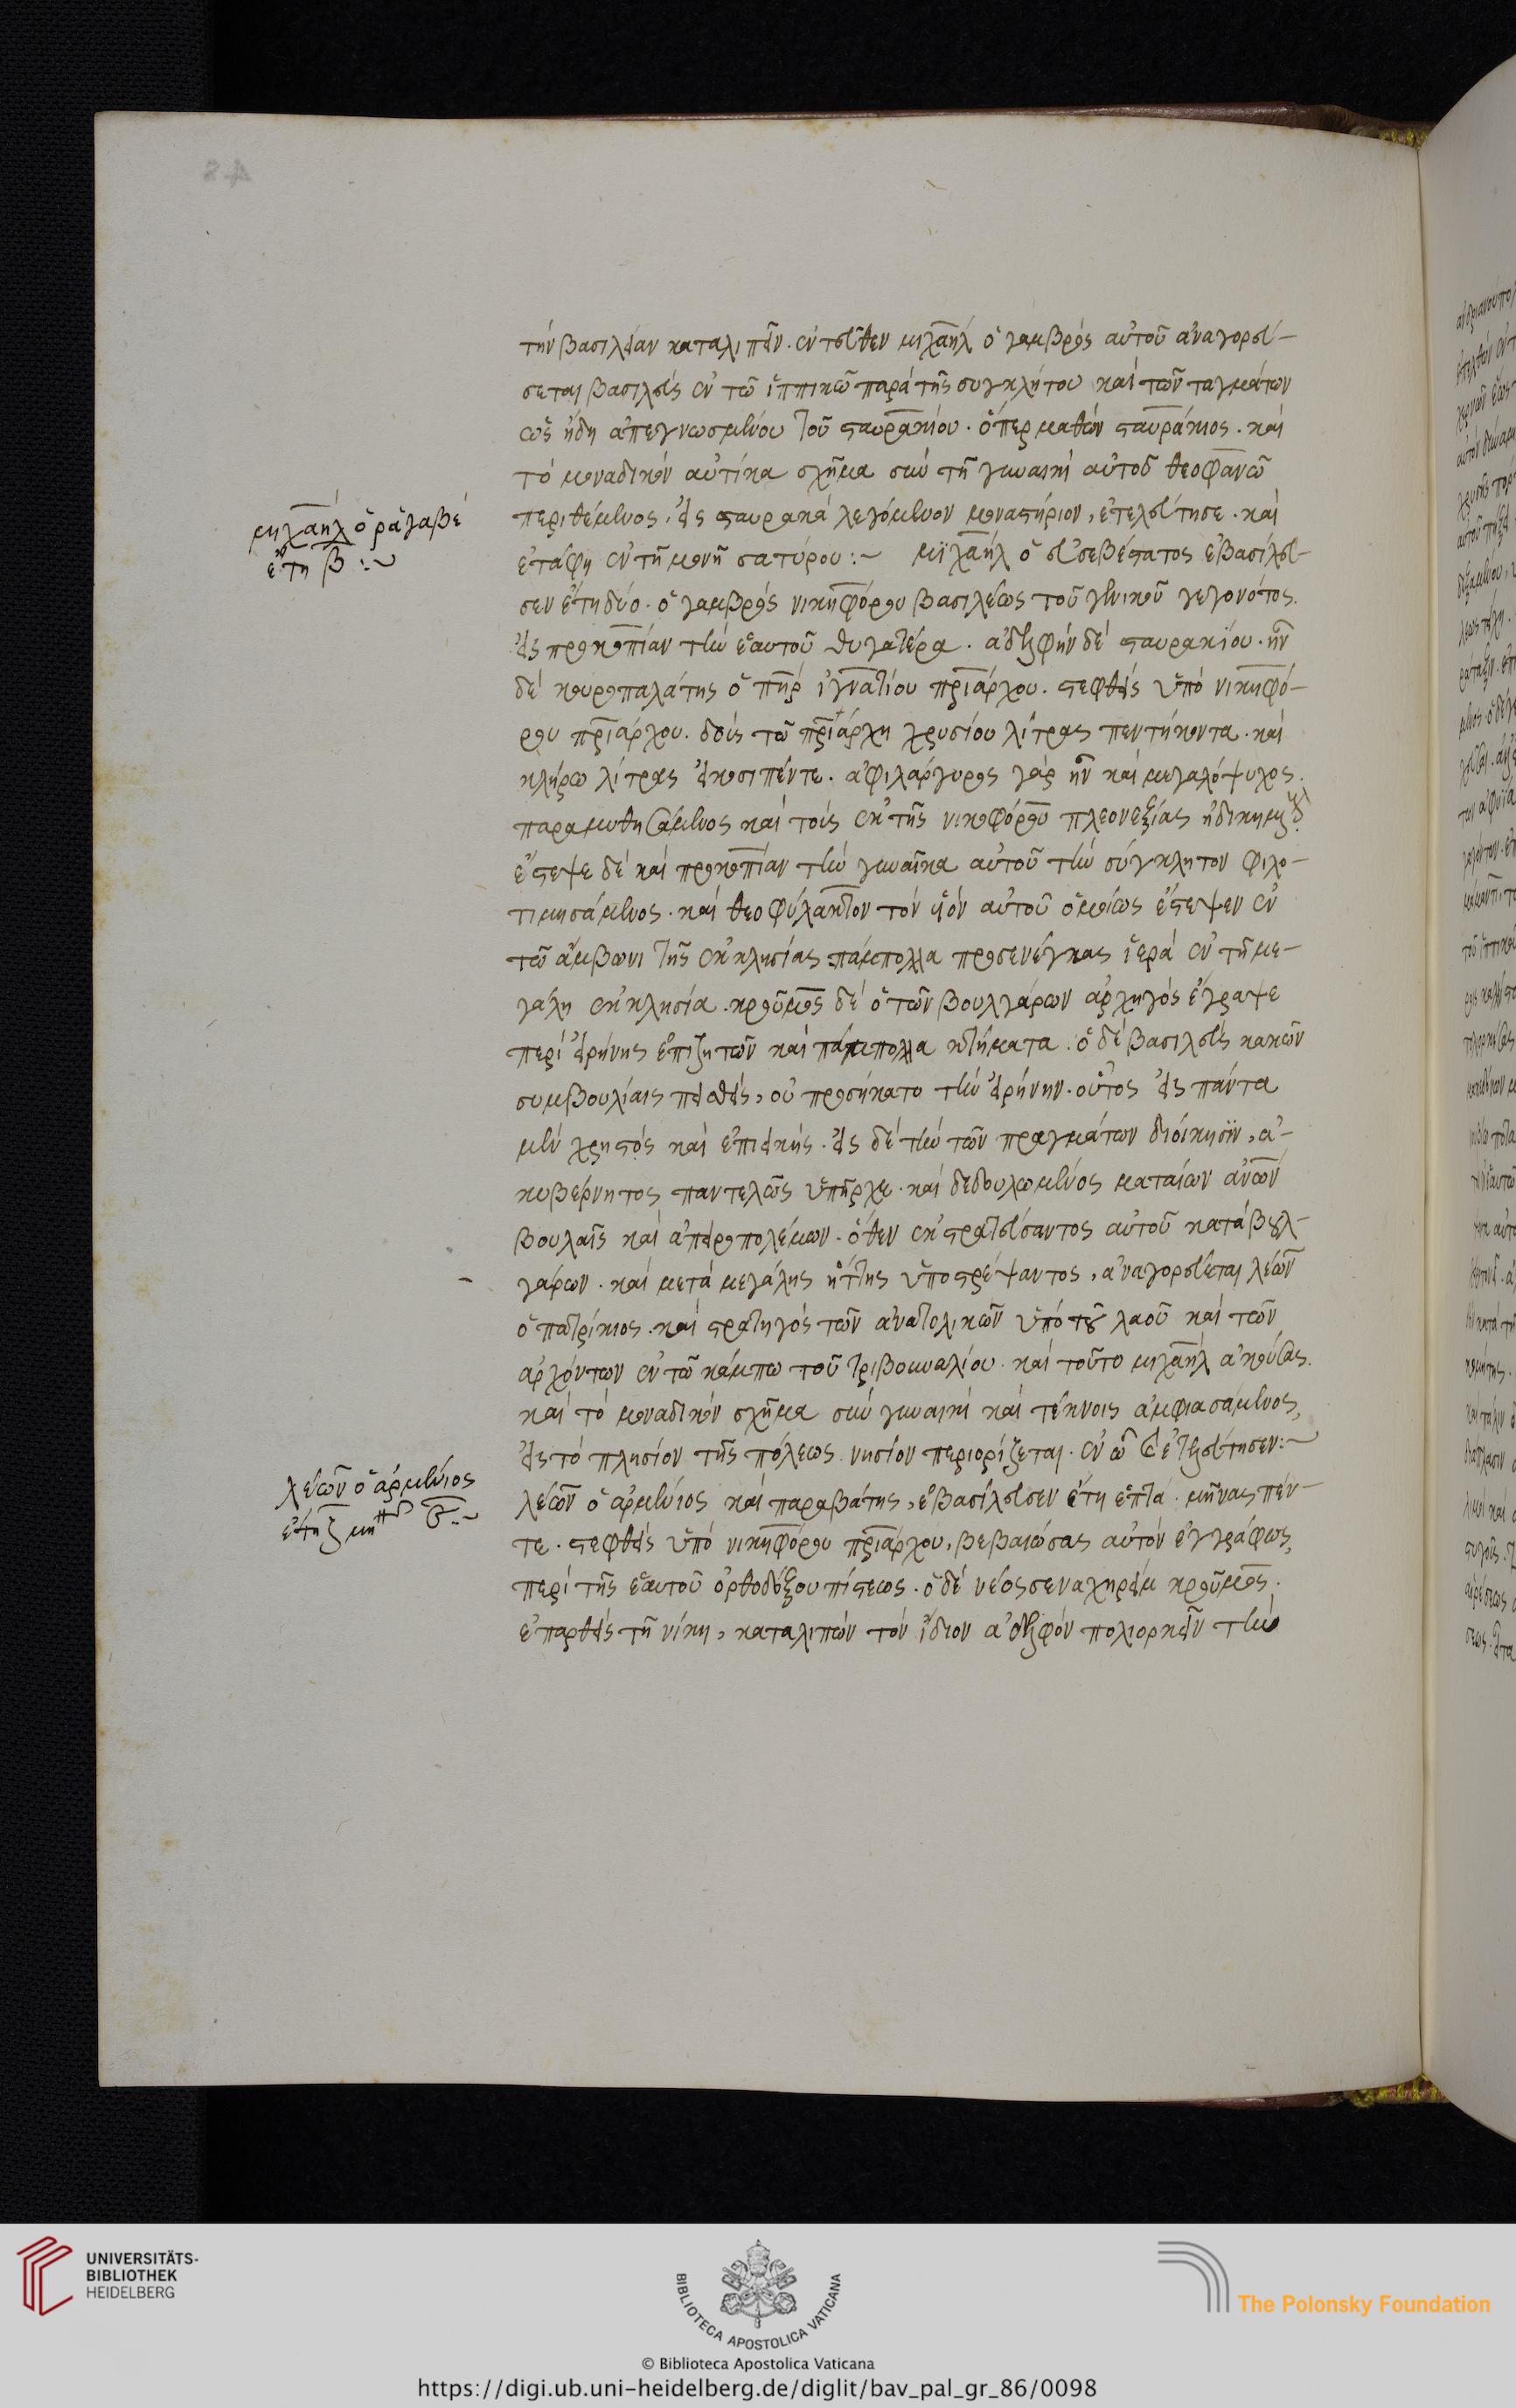 τὴν βασιλείαν καταλιπεῖν. ἐντεῦθεν μιχαὴλ ὁ γαμβρὸς αὐτοῦ ἀναγορεύ-
σεται βασιλεὺς ἐν τῶ ἱππικῶ παρὰ τῆς συγκλήτου καὶ τῶν ταγμάτων
ὡς ἤδη ἀπεγνωσμένου τοῦ σταυρακίου. ὅπερ μαθὼν σταυράκιος. καὶ
τὸ μοναδικὸν αὐτίκα σχῆμα σὺν τῆ γυναικὶ αὐτοῦ θεοφανῶ
μιχαὴλ ὁ ραγαβὲ
ἔτη β :~
περιθέμενος, εἰς σταυρακὰ λεγόμενον μοναστήριον, ἐτελεύτησε. καὶ
ἐτάφη ἐν τῆ μονῆ σατυρου :~ μϊχαὴλ ὁ εὐσεβέστατος ἐβασίλευ-
σεν ἔτη δύο. ὁ γαμβρὸς νικηφόρου βασιλέως τοῦ γενικοῦ γεγονότος.
εἰς προκοπίαν τὴν ἑαυτοῦ θυγατέρα. ἀδελφὴν δὲ σταυρακίου. ἦν
δὲ κουροπαλάτης ὁ πὴρ ἰγνατίου πριάρχου. στεφθεὶς ὑπὸ νικηφό-
ρου πριάρχου. δοὺς τῶ πριάρχη χρυσίου λίτρας πεντήκοντα. καὶ
κλήρω λίτρας εἰκοσιπέντε. ἀφιλάργυρος γὰρ ἦν καὶ μεγαλόψυχος.
παραμυθησάμενος καὶ τοὺς ἐκ τῆς νικηφόρου πλεονεξίας
ἔστεψε δὲ καὶ προκοπίαν τὴν γυναῖκα αὐτοῦ τὴν σύγκλητον φιλο-
τιμησάμενος. καὶ θεοφύλακτον τὸν υἱὸν αὐτοῦ ὁμοίως ἔστεψεν ἐν
τῶ ἄμβωνι τῆς ἐκκλησίας πάμπολλα προσενέγκας ἱερὰ ἐν τῆ με-
γάλη ἐκκλησία. κροῦμος δὲ ὁ τῶν βουλγάρων ἀρχηγὸς ἔγραψε
περὶ εἰρήνης ἐπιζητῶν καὶ πάμπολλα κτήματα. ὁ δὲ βασιλεὺς κακῶν
συμβουλίαις πεισθεὶς, οὐ προσήκατο τὴν εἰρήνην. οὗτος εἰς πάντα
μὲν χρηστὸς καὶ ἐπιεικής. εἰς δὲ τὴν τῶν πραγμάτων διοίκησϊν, ἀ-
κυβέρνητος παντελῶς ὑπῆρχε. καὶ δεδουλωμένος ματαίων ἀνῶν
βουλαῖς καὶ ἀπειροπολέμων. ὅθεν ἐκστρατεύσαντος αὐτοῦ κατὰ βουλ-
γάρων. καὶ μετὰ μεγάλης ἥττης ὑποστρέψαντος, ἀναγορεύεται λέων
ὁ πατρίκιος. καὶ στρατηγὸς τῶν ἀνατολικῶν ὑπὸ τοῦ λαοῦ καὶ τῶν
ἀρχόντων ἐν τῶ κάμπω τοῦ τριβουναλίου. καὶ τοῦτο μιχαὴλ ἀκούσας.
καὶ τὸ μοναδικὸν σχῆμα σὺν γυναικὶ καὶ τέκνοις ἀμφιασάμενος,
εἰς τὸ πλησίον τῆς πόλεως νησίον περιορίζεται. ἐν ὧ καὶ ἐτελεύτησεν:~
λέων ὁ ἀρμένιος
ἔτη ζ μη
λέων ὁ ἀρμένιος καὶ παραβάτης, ἐβασίλευσεν ἔτη ἑπτὰ. μῆνας πέν-
τε. στεφθεὶς ὑπὸ νικηφόρου πριάρχου, βεβαιώσας αὐτὸν ἐγγράφως,
περὶ τῆς ἑαυτοῦ ὀρθοδόξου πίστεως. ὁ δὲ νέος σεναχηρεὶμ κροῦμος.
ἐπαρθεὶς τῆ νίκη, καταλιπὼν τὸν ἴδιον ἀδελφὸν πολιορκεῖν τὴν
UNIVERSITÄTS-
BIBLIOTHEK
HEIDELBERG
BIBLIOTECA APOSTOLICA VATICANA
The Polonsky Foundation
© Biblioteca Apostolica Vaticana
https://digi.ub.uni-heidelberg.de/diglit/bav_pal_gr_86/0098